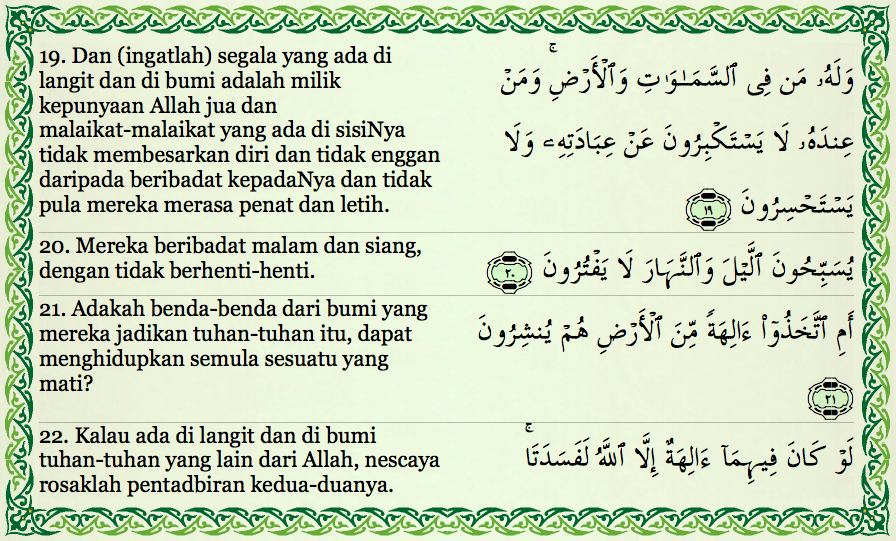 19. Dan (ingatlah) segala yang ada di
langit dan di bumi adalah milik
kepunyaan Allah jua dan
malaikat-malaikat yang ada di sisiNya
tidak membesarkan diri dan tidak enggan
daripada beribadat kepadaNya dan tidak
pula mereka merasa penat dan letih.
وَلَهُۥ مَن فِى ٱلسَّمَـٰوَٰتِ وَٱلْأَرْضِ ۚ وَمَنْ
عِندَهُۥ لَا يَسْتَكْبِرُونَ عَنْ عِبَادَتِهِۦ وَلَا
يَسْتَحْسِرُونَ ١٩
20. Mereka beribadat malam dan siang,
dengan tidak berhenti-henti.
يُسَبِّحُونَ ٱلَّيْلَ وَٱلنَّهَارَ لَا يَفْتُرُونَ ٢٠
21. Adakah benda-benda dari bumi yang
mereka jadikan tuhan-tuhan itu, dapat
menghidupkan semula sesuatu yang
mati?
أَمِ ٱتَّخَذُوٓا۟ ءَالِهَةً مِّنَ ٱلْأَرْضِ هُمْ يُنشِرُونَ
٢١
22. Kalau ada di langit dan di bumi
tuhan-tuhan yang lain dari Allah, nescaya
rosaklah pentadbiran kedua-duanya.
لَوْ كَانَ فِيهِمَآ ءَالِهَةٌ إِلَّا ٱللَّهُ لَفَسَدَتَا ۚ